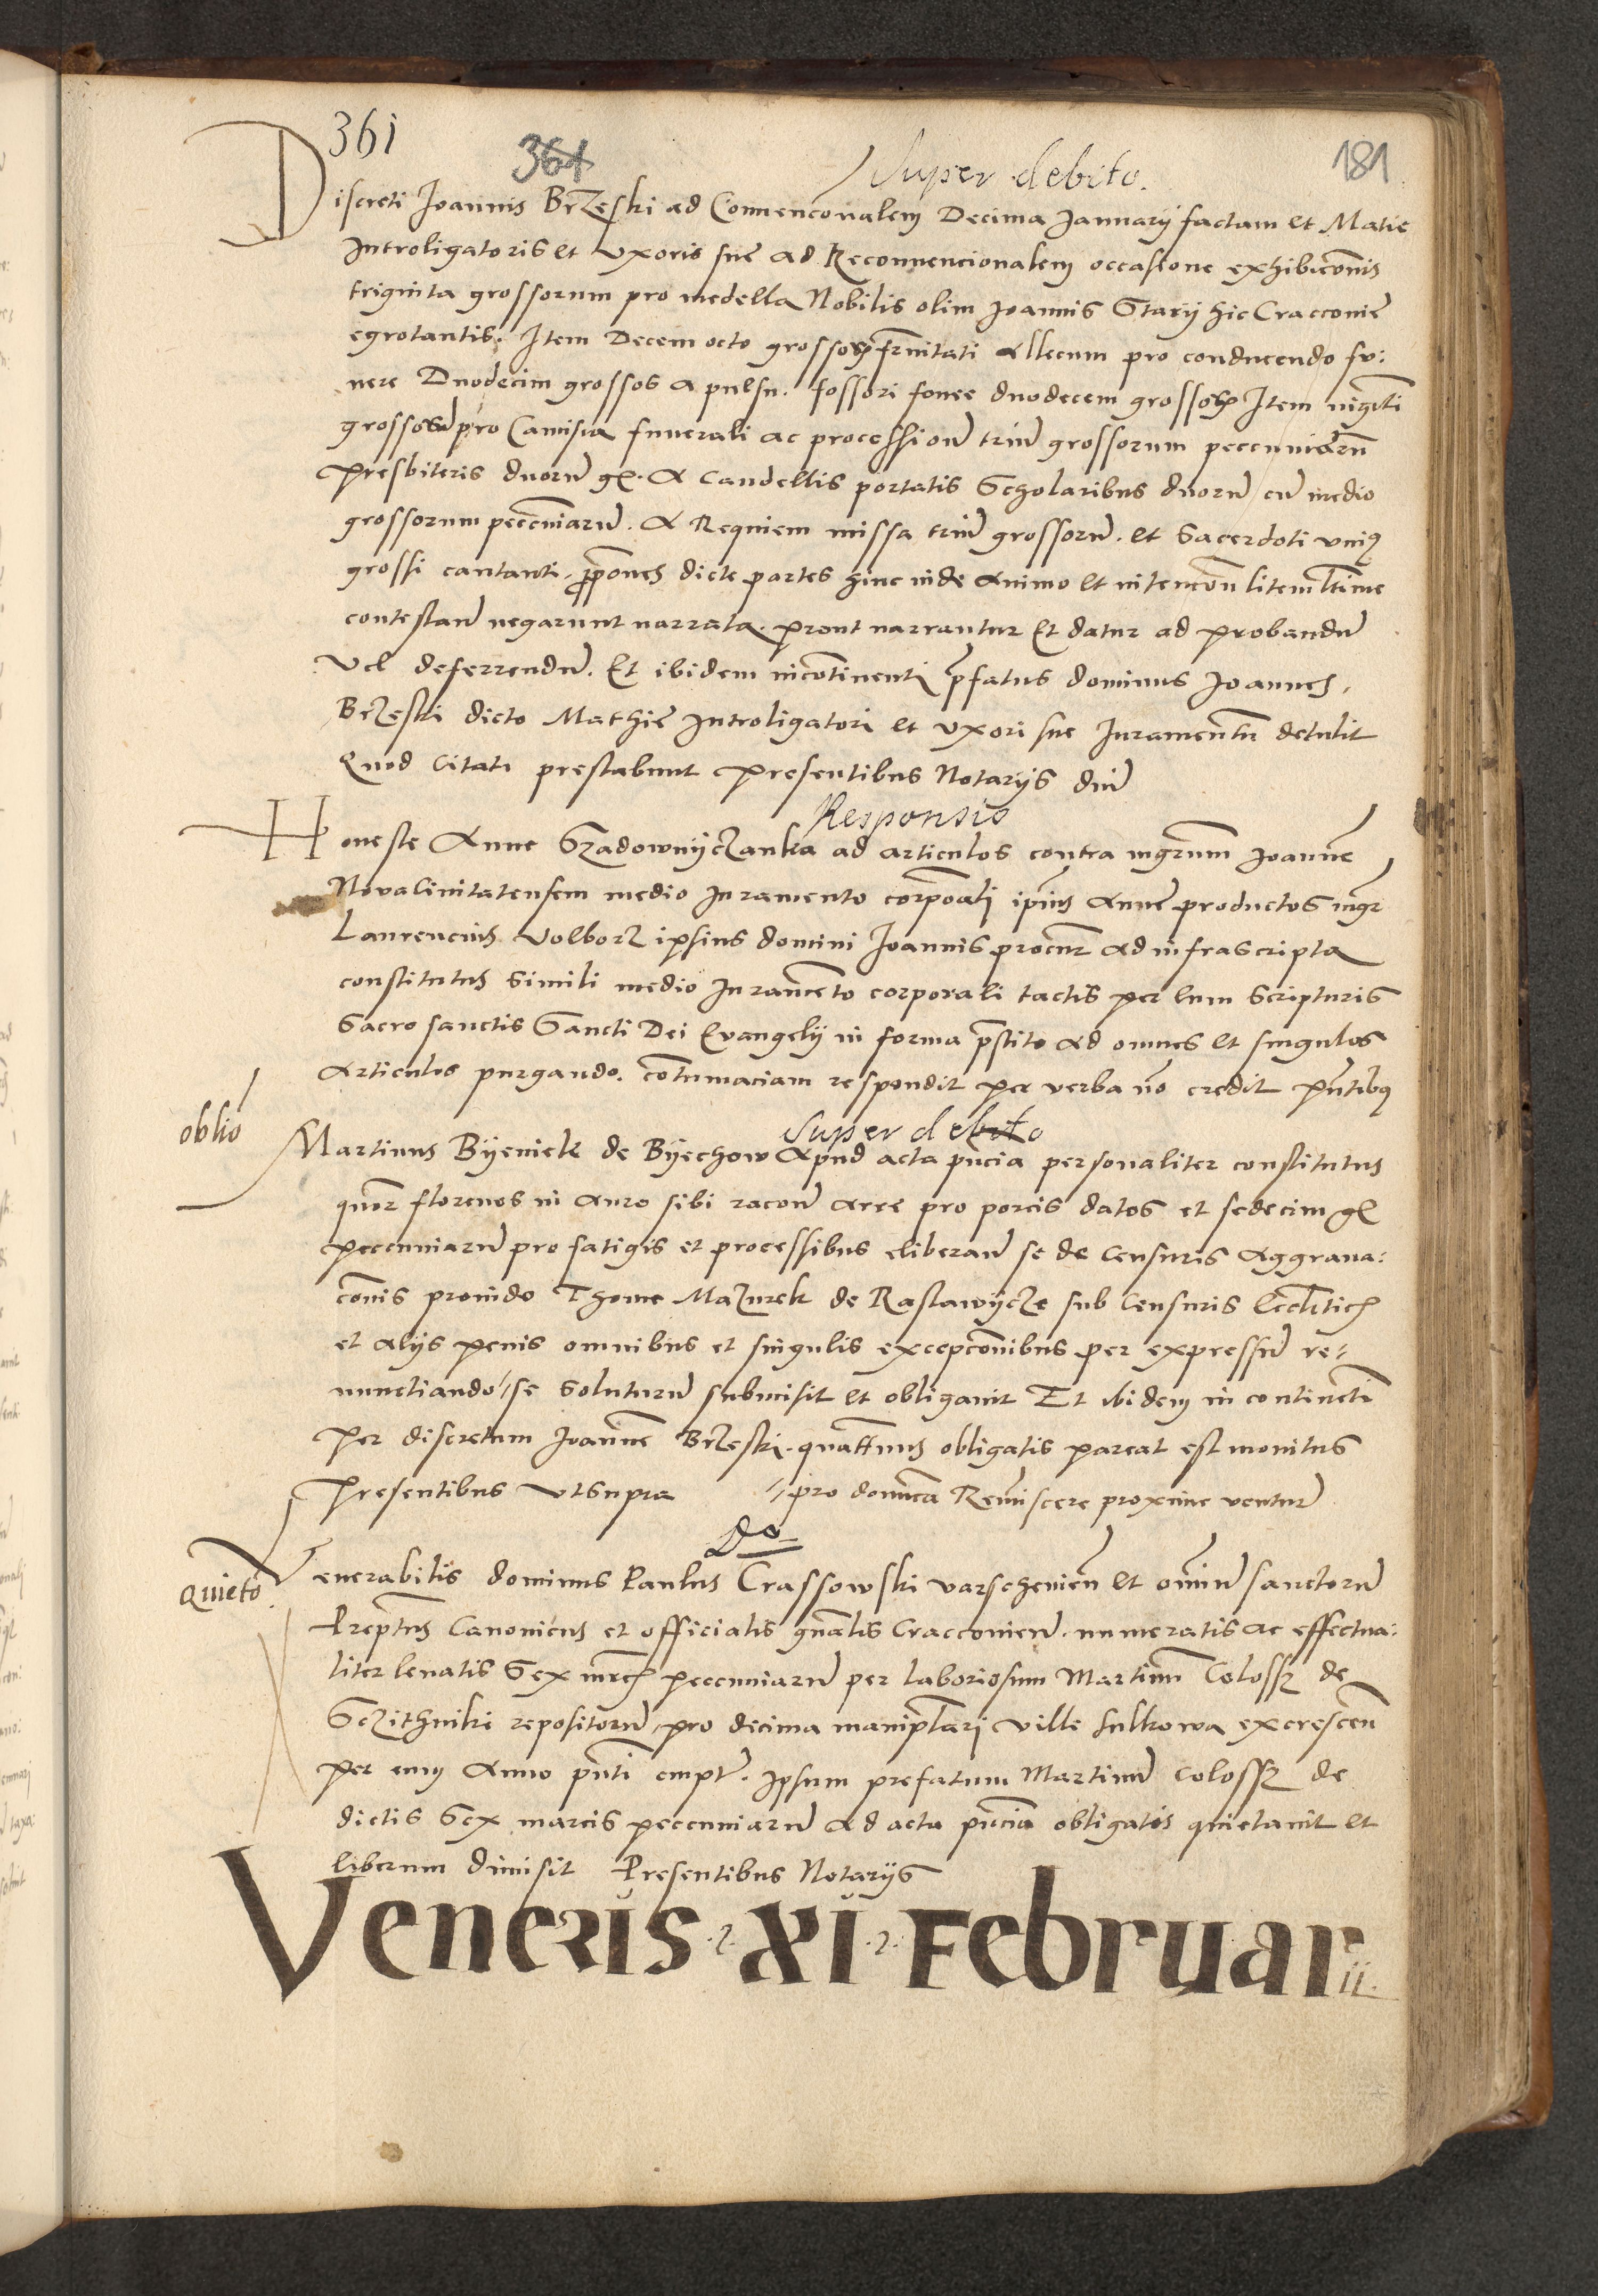 361
364
181
Super debito.
Discreti Joannis Brzeski ad Convenconalem Decima Januarij factam et Matie
Introligatoris et uxoris sue ad Reconvencionalem occasione exhibiconis
triginta grossorum pro medella Nobilis olim Joannis Starij hic Cracconie
egrotantis. Item Decem octo grossorum frnitati allecum pro conducendo fu:
nere Duodecim grossos a pulsu. fossori fovee duodecem grossorum Item viginti
grossos pro Camisia funerali ac procession trium grossorum peccuniarum
Presbiteris duorum gr. A Candellis portatis Scholaribus duorum cum medio
grossorum peccuniarum. A Requiem missa trium grossorum. et Sacerdoti unius
grossi cantanti. dicte partes hinc inde animo et intencon litem ltime
contestan negarunt narrata. prout narrantur Et datur ad probandum
Vel deferrendum. Et ibidem incontinenti pfatus dominus Joannes
Brzeski dicto Mathie Introligatori et uxori sue Juramentum detulit
Quod Citati prestabunt Presentibus Notarijs
Responsio
Honeste Anne Szadownijczanka ad articulos contra mgrum Joannem
Novacivitatensem medio Juramento corporali ipius Anne productos mgr
Laurencius Volborz ipsius domini Joannis procur ad infrascripta
constitutus simili medio Juramento corporali tactis per eum Scripturis
Sacro sanctis Sancti Dei Evangelij in forma pstito ad omnes et singulos
Articulos purgando. contumaciam respondit per verba no credit pntibus
oblio
Super debito
Martinus Bijeniek de Bijechow Apud acta pncia personaliter constitutus
quor florenos in auro sibi racon arre pro porcis datos et sedecim gr
peccuniarum pro fatigis et processibus eliberan se de Censuris Aggrava:
conis provido Thome Mazurek de Rastawijcze sub Censuris Ecclitic
et alijs penis omnibus et singulis excepconibus per expressum re:
nunctiando // se soluturum submisit et obligavit Et ibidem in continenti
Per discretum Joannem Brzeski. quattenus obligatis pareat est monitus
Presentibus Ut Supra // pro domca Reminiscere proxime ventur
Do
Quieto.
Venerabilis dominus Paulus Crassowski Varschevien et omnium sanctorum
Preptus Canonicus et officialis gnalis Cracconien. numeratis ac effectua:
liter levatis Sex mrc peccuniarum per laboriosum Martinum Coloss de
Sczithniki repositorum pro decima maniplari Ville Sulkowa excrescen
per eum Anno pnti empt. Ipsum prefatum Martinum Coloss de
dictis Sex marcis peccuniarum Ad acta pncia obligatis quietavit et
liberum dimisit Presentibus Notarijs
Veneris XI Februarii